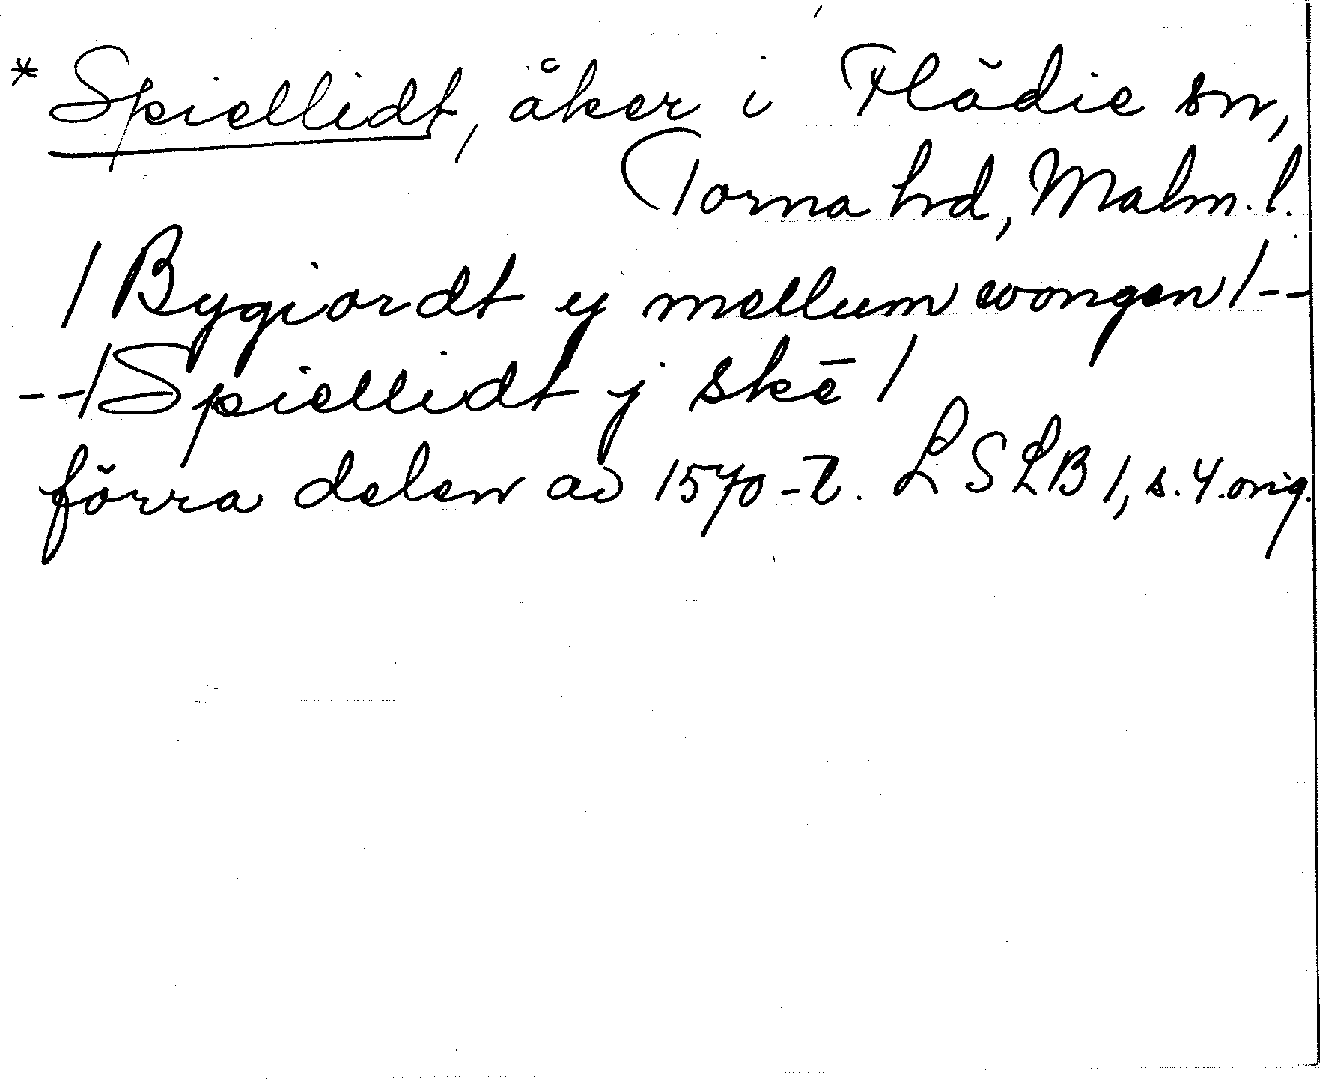 * Spiellidt, åker i Flädie sn,
Torna hd, Malm. l.
/ Bygiordt y mellum wongen / --
-- / Spiellidt j skē /
förra delen av 1570-t. LSLB 1, s. 4. orig.